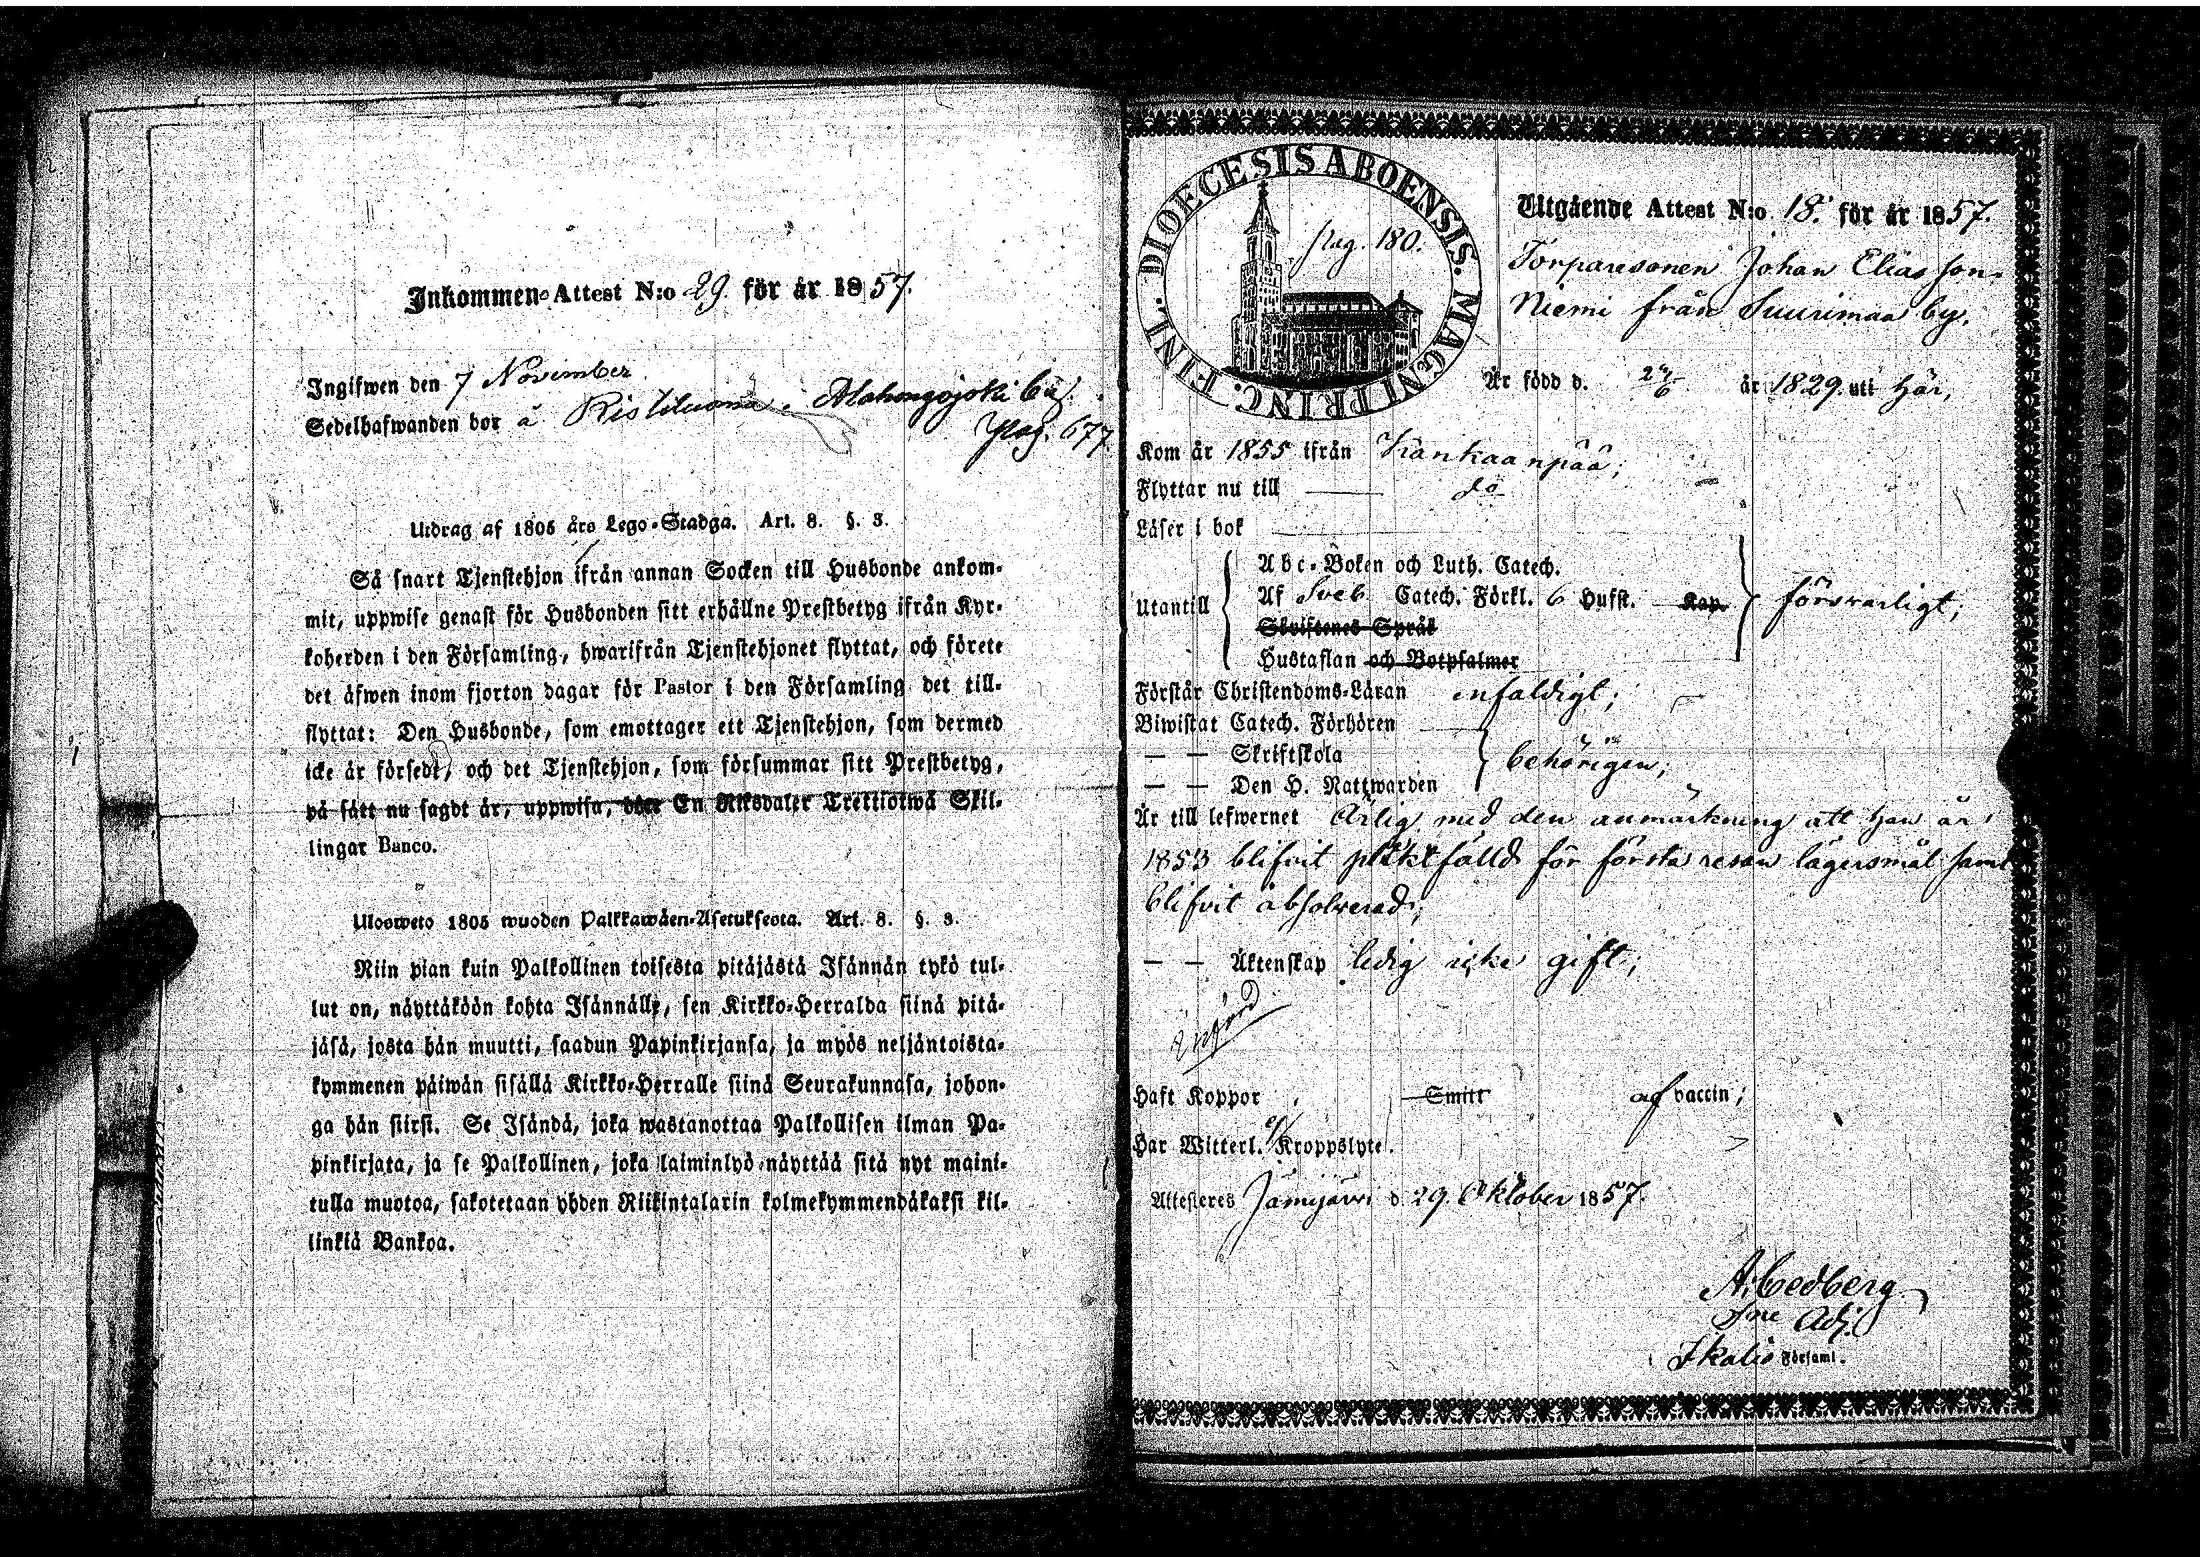 Inkommen-Attest N:o 29. för år 1857.
Ingifwen den 7 November
Sedelhafwanden bor å
Pag. 677
Utdrag af 1805 års Lego-Stadga. Art. 8. §. 3.
Så snart Tjenstehjon ifrån annan Socken till Husbonde ankom-
mit, uppwise genast för Husbonden sitt erhållne Prestbetyg ifrån Kyr-
koherden i den Församling, hwarifrån Tjenstehjonet flyttat, och förete
det äfwen inom fjorton dagar för Pastor i den Församling det till-
flyttat: Den Husbonde, som emottager ett Tjenstehjon, som dermed
icke är försedt, och det Tjenstehjon, som försummar sitt Prestbetyg,
på sätt nu sagdt är, uppwisa, böte En Riksdaler Trettiotwå Skil-
lingar Banco.
Ulosweto 1805 wuoden Palkkawäen-Asetuksesta. Art. 8. §. 3.
Niin pian kuin Palkollinen toisesta pitäjästä Isännän tykö tul-
lut on, näyttäköön kohta Isännälle, sen Kirkko-Herralda siinä pitä-
jäsä, josta hän muutti, saadun Papinkirjansa, ja myös neljäntoista-
kymmenen päiwän sisällä Kirkko-Herralle siinä Seurakunnasa, johon-
ga hän siirst. Se Isändä, joka wastanottaa Palkollisen ilman Pa-
pinkirjata, ja se Palkollinen, joka laiminlyö näyttää sitä nyt maini-
tulla muotoa, sakotetaan yhden Riikintalarin kolmekymmendäkaksi kil-
linkiä Bankoa.
DIOECESIS ABOENSIS. MAGNI PRINC. FINL.
pag. 180.
Utgående Attest N:o 18. för år 1857.
Torparesonen Johan Eliasson
Niemi från Suurimaa by.
Är född d. 24/6 år 1829. uti här,
Kom år 1855 ifrån Kankaanpää;
Flyttar nu till do
Läser i bok
Utantill
Abc-Boken och Luth. Catech.
Af Sveb. Catech. Förkl. 6 Hufst. Kap.
Skriftenes Språk
Hustaflan och Botpsalmer
försvarligt;
Förstår Christendoms-Läran enfaldigt;
Biwistat Catech. Förhören
— — Skriftskola
— — Den H. Nattwarden
behörigen;
Är till lefwernet Ärlig med den anmärkning att han år
1853 blifvit pliktfälld för första resan lägersmål samt
blifvit absolverad;
— — Äktenskap ledig icke gift;
Haft Koppor Smitt af vaccin;
Har Witterl. ej Kroppslyte.
Attesteres Jämijärvi d. 29. Oktober 1857.
A. Cedberg
Sne Adj.
Ikalis Församl.